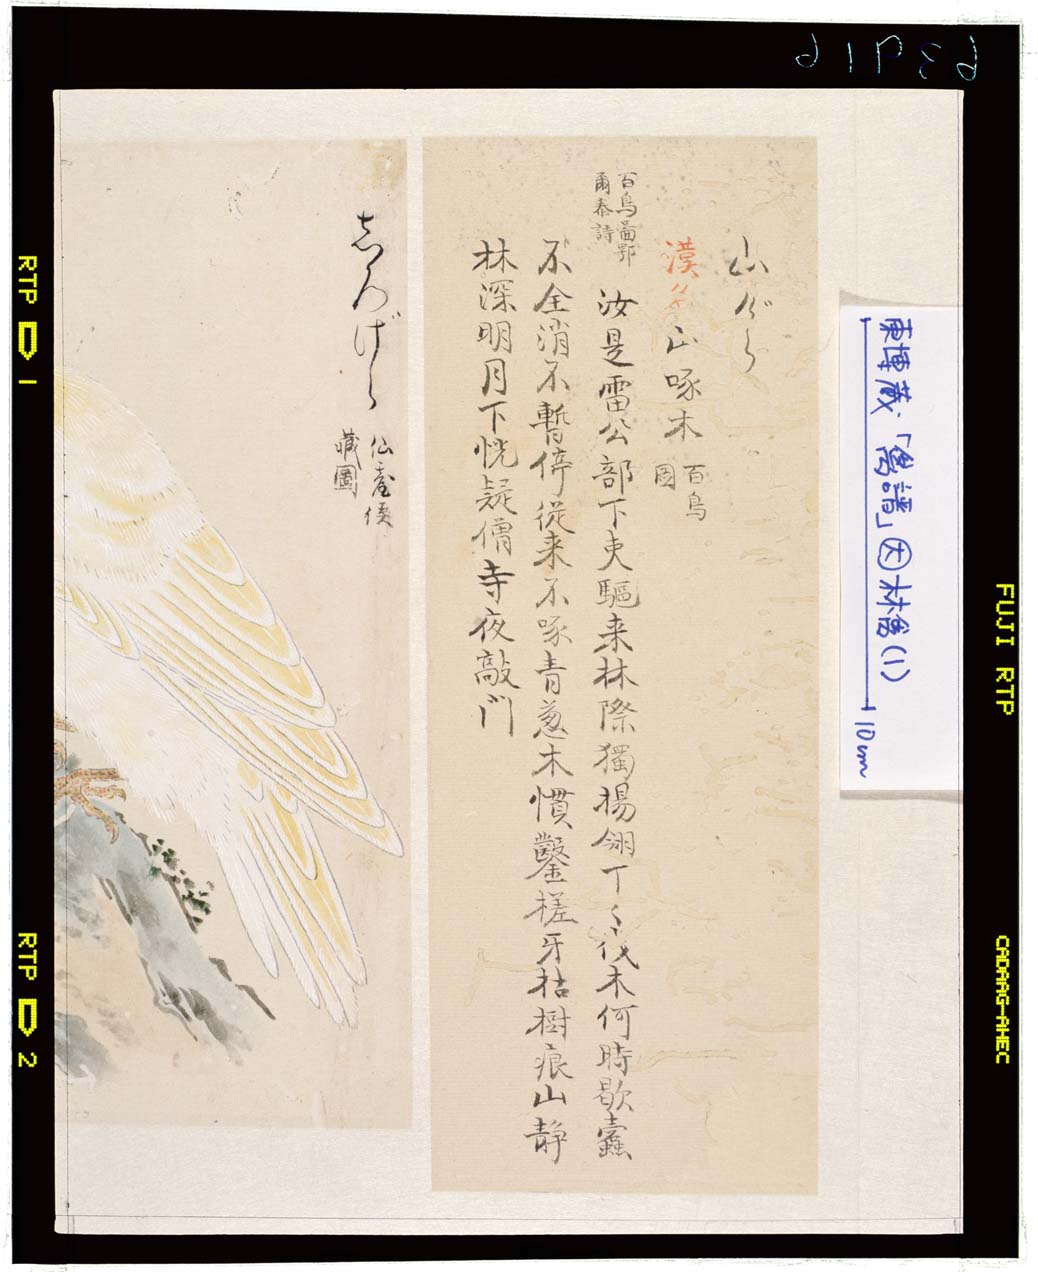 61936
山がら
漢名 山啄木 百鳥
圖
百鳥圖鄂
爾泰詩
汝是雷公部下吏驅来林際獨揚翎丁〻伐木何時歇蠹
不全消不暫停従来不啄青葱木慣鑿槎牙枯樹痕山静
林深明月下恍疑僧寺夜敲門
志ろげら
仙臺侯
藏圖
東博蔵「鳥譜」因林禽(1)
10cm
RTP 1
RTP 2
FUJI RTP